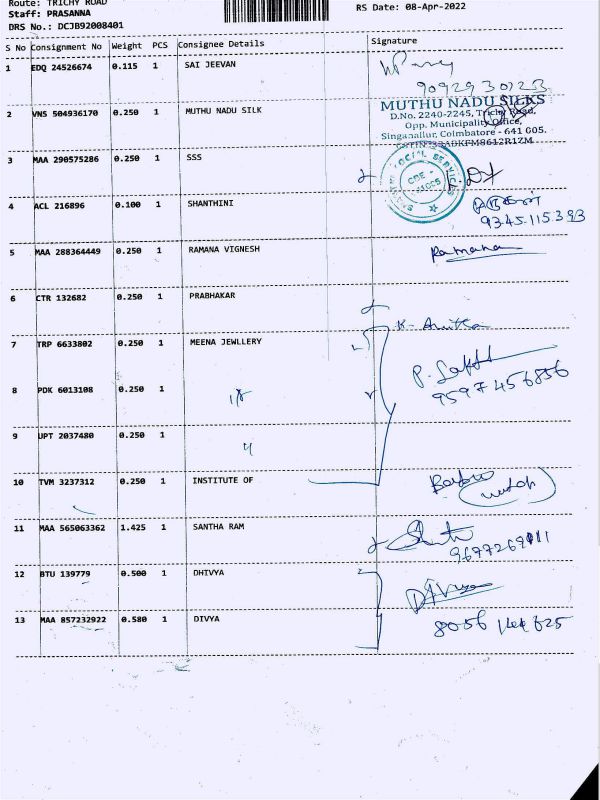 Route: TRICHY ROAD
Staff: PRASANNA
DRS No.: DCJB92008401
RS Date: 08-Apr-2022
S No Consignment No Weight PCS Consignee Details Signature
1 EDQ 24526674 0.115 1 SAI JEEVAN
2 VNS 504936170 0.250 1 MUTHU NADU SILK
MUTHU NADU SILKS
D.No. 2240-2245, Trichy Road,
Opp. Municipality Office,
Singanallur, Coimbatore - 641 005.
3 MAA 290575286 0.250 1 SSS
SOCIAL SERVICE
4 ACL 216896 0.100 1 SHANTHINI
93.45.115.393
5 MAA 288364449 0.250 1 RAMANA VIGNESH Ramana
6 CTR 132682 0.250 1 PRABHAKAR
K. Anitha
7 TRP 6633802 0.250 1 MEENA JEWLLERY
P. Sakthi
9597456856
8 PDK 6013108 0.250 1
9 UPT 2037480 0.250 1
10 TVM 3237312 0.250 1 INSTITUTE OF
11 MAA 565063362 1.425 1 SANTHA RAM
12 BTU 139779 0.500 1 DHIVYA
Divya
13 MAA 857232922 0.580 1 DIVYA
8056 144 625